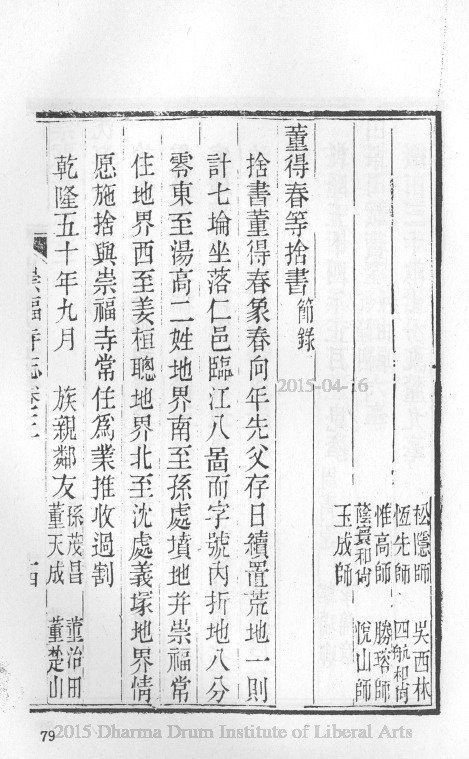 松隱師　吳西林
恆先師　四航和尚
惟高師　勝瑢師
蔭寰和尚　悅山師
玉成師
董得春等捨書 簡錄
捨書董得春象春向年先父存日續置荒地一則
計七埨坐落仁邑臨江八啚而字號內折地八分
零東至湯高二姓地界南至孫處墳地并崇福常
住地界西至姜桓聰地界北至沈處義塚地界情
愿施捨與崇福寺常住為業推收過割
乾隆五十年九月　族親鄰友 孫茂昌 董天成 董治田 董楚山
崇福寺志卷三　十四
2015-04-16
79
2015 Dharma Drum Institute of Liberal Arts